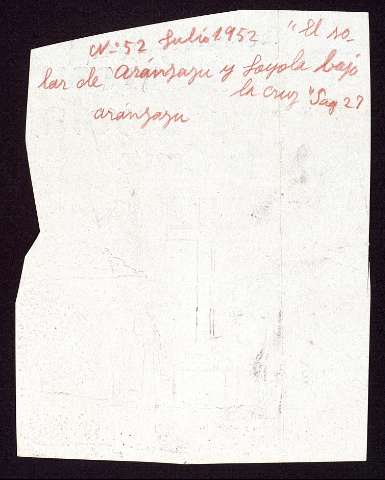 Nº 52 Julio 1952 "El so-
lar de Aránzazu y Loyola bajo
la cruz" Pag 27
aránzazu